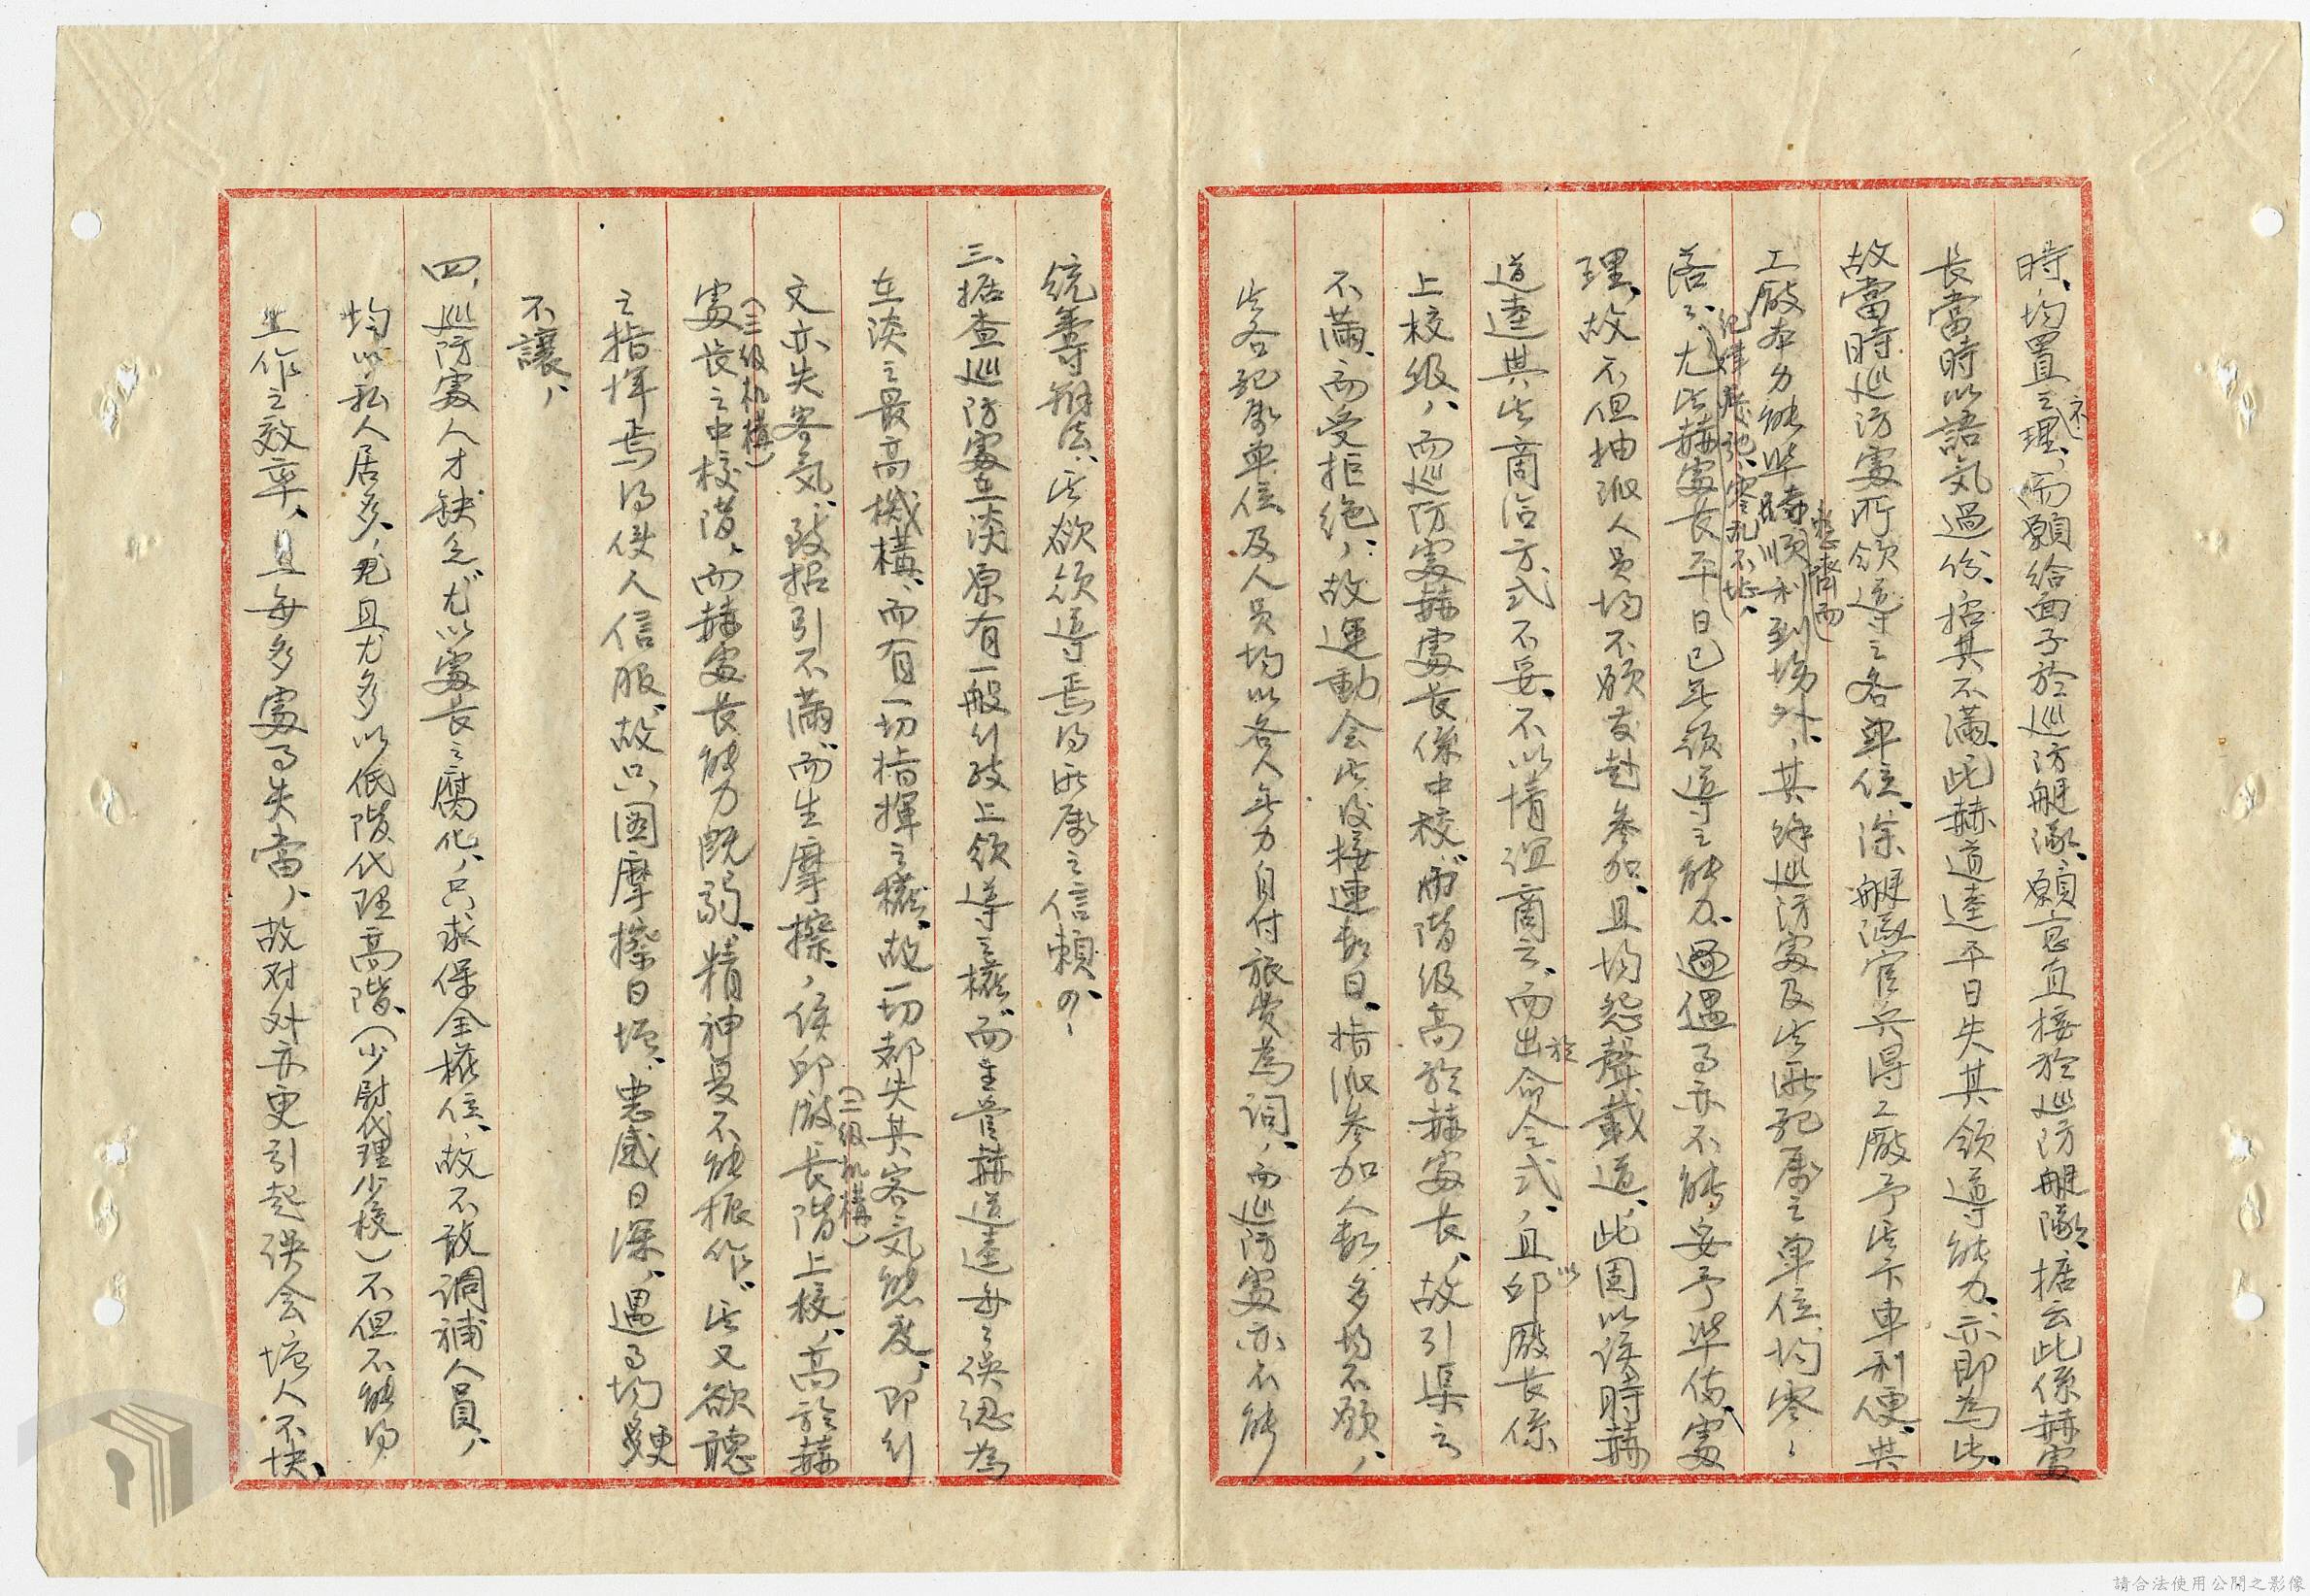 時、均置之不理、而願給面子於巡防艇隊、願意直接於巡防艇隊、據云此係赫處
長當時以語氣過份、招其不滿、此赫道逵平日失其領導能力、亦即為此、
故當時巡防處所領導之各單位、除艇隊官兵得工廠予此下車利便、共
工廠本身能準時順利整齊而到場外、其餘巡防處及此所配屬之單位均零、
落、紀律廢弛、零亂不堪、尤此赫處長平日已無領導之能力、過遇事亦不能妥予準備、處
理、故不但抽派人員均不願友赴參加、且均怨聲載道、此固以該時赫
道逵與此商洽方式不妥、不以情誼商之、而出於命令式、且以邱廠長係
上校級、而巡防處赫處長係中校、而階級高於赫處長、故引渠之
不滿、而受拒絕、故運動會此役接連數日、指派參加人數多均不願、
此各配屬單位及人員均以各人無力自付旅費為詞、而巡防處亦不能
統籌辦法、此欲領導焉得所屬之信賴、
三、据查巡防處在淡原有一般行政上領導之權、而主管赫道逵每之誤認為
在淡之最高機構、而有一切指揮之權、故一切都失其客気態度、即行
文亦失客気、致招引不滿、而生摩擦、係邱廠長(二級机構)階上校、高於赫
處長(三級机構)之中校階、而赫處長能力既弱、精神萎不能振作、此又欲聽
之指揮焉得使人信服、故只圖摩擦日增、惡感日深、遇事均更
不讓、
四、巡防處人才缺乏、尤以處長之腐化、只求保全權位、故不敢調補人員、
均以私人居多、且尤多以低階代理高階、(少尉代理少校)不但不能得
工作之效率、且每多處事失當、故对外亦更引起誤会增人不快、
請合法使用公開之影像